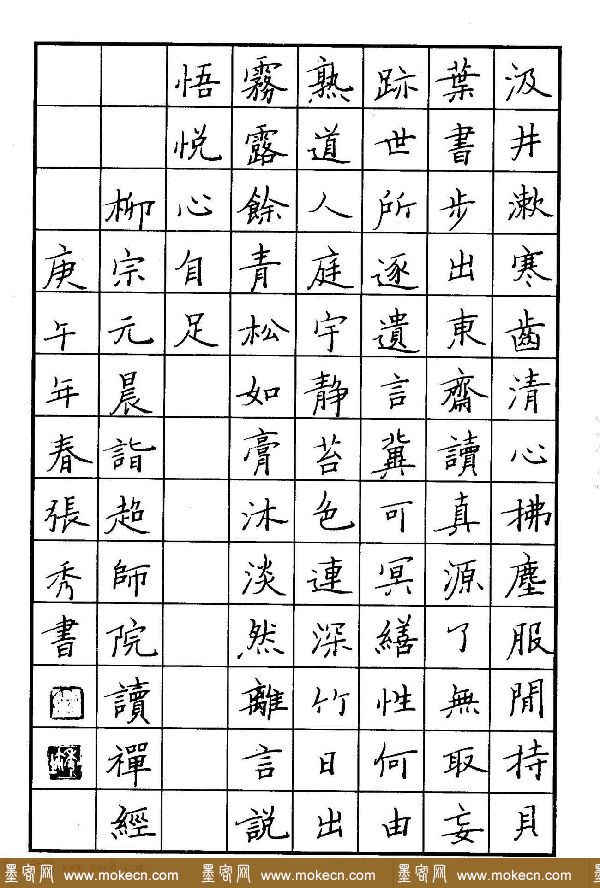 汲井漱寒齒清心拂塵服閒持貝
葉書步出東齋讀真源了無取妄
跡世所逐遺言冀可冥繕性何由
熟道人庭宇静苔色連深竹日出
霧露餘青松如膏沐淡然離言説
悟悦心自足
柳宗元晨詣超師院讀禪經
庚午年春張秀書
墨客网 www.mokecn.com 墨客网 www.mokecn.com 墨客网 www.mokecn.com